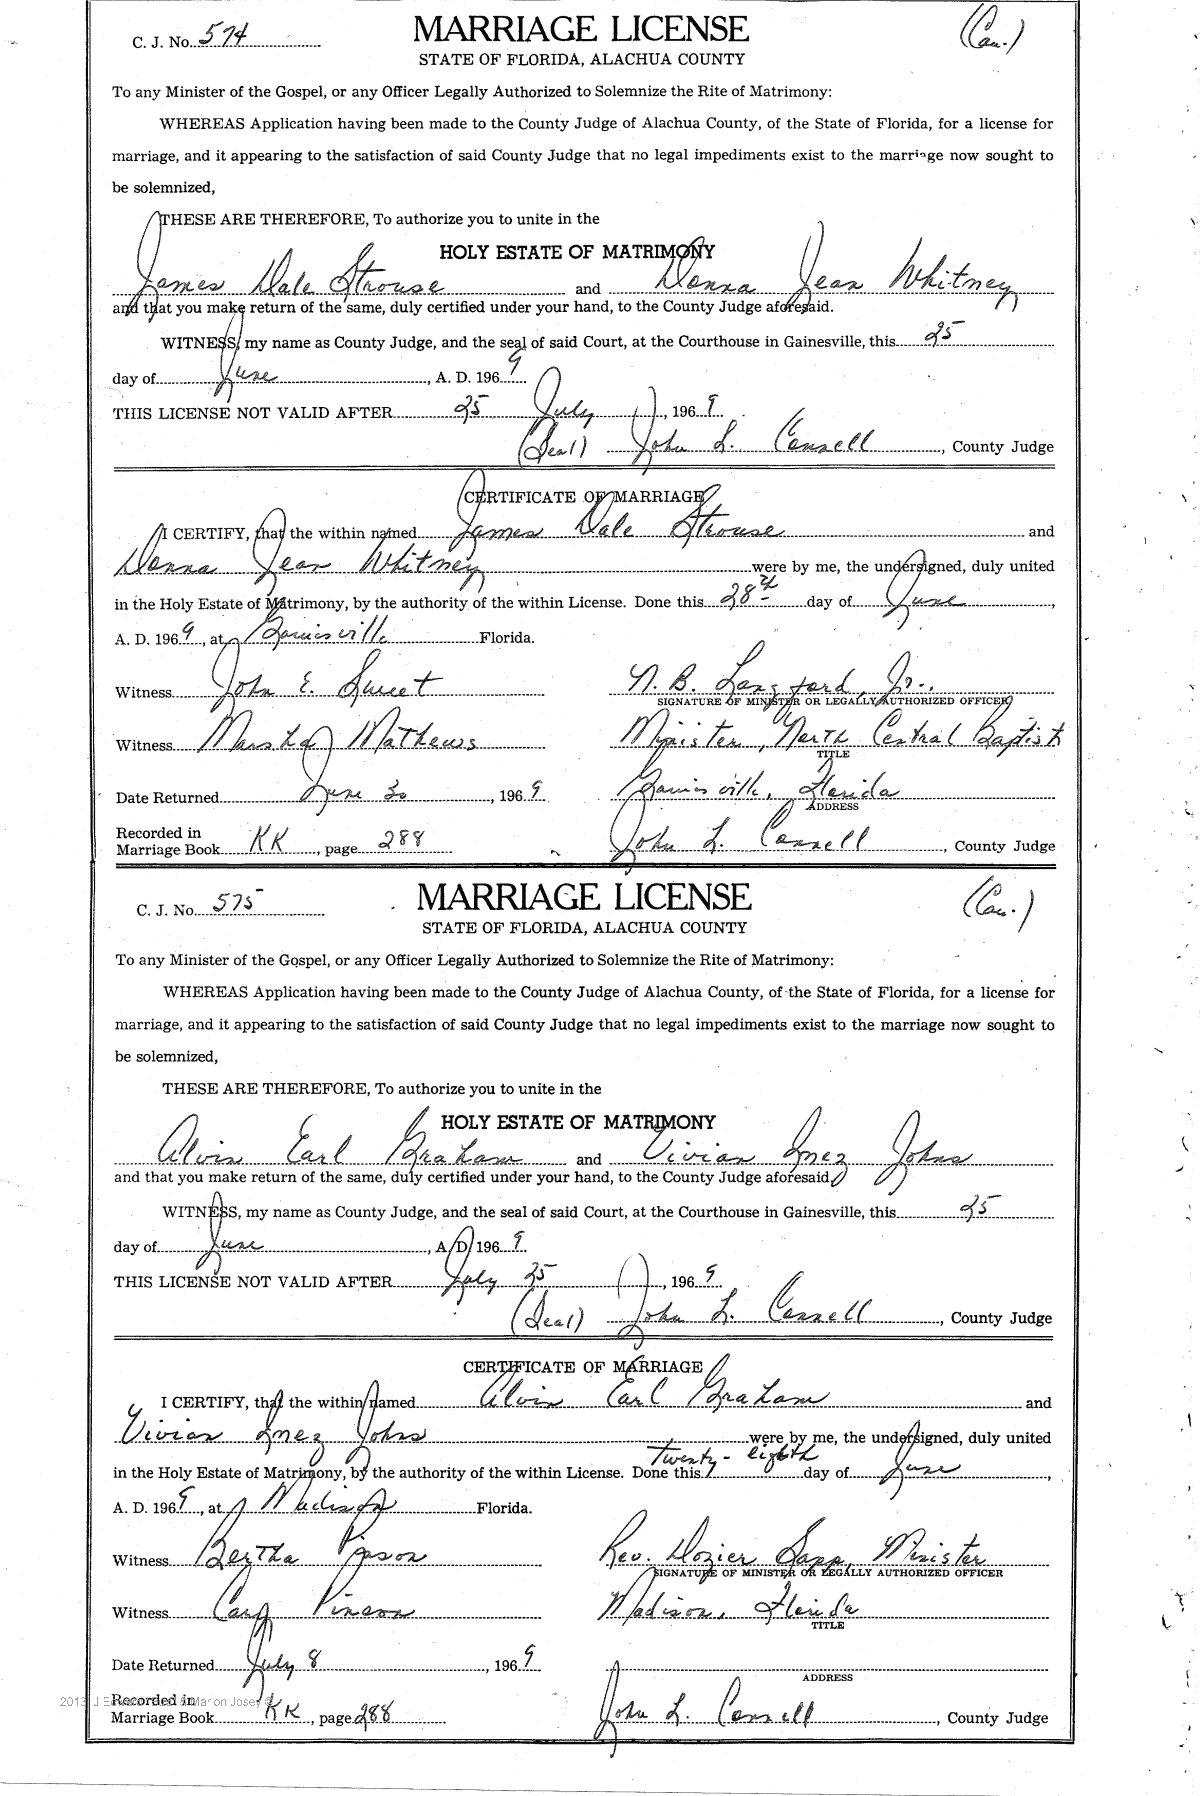 C. J. No. 574
MARRIAGE LICENSE
(Cau.)
STATE OF FLORIDA, ALACHUA COUNTY
To any Minister of the Gospel, or any Officer Legally Authorized to Solemnize the Rite of Matrimony:
WHEREAS Application having been made to the County Judge of Alachua County, of the State of Florida, for a license for
marriage, and it appearing to the satisfaction of said County Judge that no legal impediments exist to the marriage now sought to
be solemnized,
THESE ARE THEREFORE, To authorize you to unite in the
HOLY ESTATE OF MATRIMONY
James Dale Strouse and Donna Jean Whitney
and that you make return of the same, duly certified under your hand, to the County Judge aforesaid.
WITNESS, my name as County Judge, and the seal of said Court, at the Courthouse in Gainesville, this 25
day of June, A. D. 1969
THIS LICENSE NOT VALID AFTER 25 July, 1969
(Seal) John L. Connell, County Judge
CERTIFICATE OF MARRIAGE
I CERTIFY, that the within named James Dale Strouse and
Donna Jean Whitney were by me, the undersigned, duly united
in the Holy Estate of Matrimony, by the authority of the within License. Done this 28th day of June,
A. D. 1969, at Gainesville Florida.
Witness John E. Sweet N. B. Langford, Jr.,
SIGNATURE OF MINISTER OR LEGALLY AUTHORIZED OFFICER
Witness Marsha Mathews Minister, North Central Baptist
TITLE
Date Returned June 30, 1969 Gainesville, Florida
ADDRESS
Recorded in
Marriage Book KK, page 288 John L. Connell, County Judge
C. J. No. 575
MARRIAGE LICENSE
(Cau.)
STATE OF FLORIDA, ALACHUA COUNTY
To any Minister of the Gospel, or any Officer Legally Authorized to Solemnize the Rite of Matrimony:
WHEREAS Application having been made to the County Judge of Alachua County, of the State of Florida, for a license for
marriage, and it appearing to the satisfaction of said County Judge that no legal impediments exist to the marriage now sought to
be solemnized,
THESE ARE THEREFORE, To authorize you to unite in the
HOLY ESTATE OF MATRIMONY
Alvin Earl Graham and Vivian Inez Johns
and that you make return of the same, duly certified under your hand, to the County Judge aforesaid.
WITNESS, my name as County Judge, and the seal of said Court, at the Courthouse in Gainesville, this 25
day of June, A. D. 1969
THIS LICENSE NOT VALID AFTER July 25, 1969
(Seal) John L. Connell, County Judge
CERTIFICATE OF MARRIAGE
I CERTIFY, that the within named Alvin Earl Graham and
Vivian Inez Johns were by me, the undersigned, duly united
in the Holy Estate of Matrimony, by the authority of the within License. Done this twenty-eighth day of June,
A. D. 1969, at Madison Florida.
Witness Bertha Rev. Dozier Sapp, Minister
SIGNATURE OF MINISTER OR LEGALLY AUTHORIZED OFFICER
Witness Pinson Madison, Florida
TITLE
Date Returned July 8, 1969
ADDRESS
Recorded in
Marriage Book KK, page 288 John L. Connell, County Judge